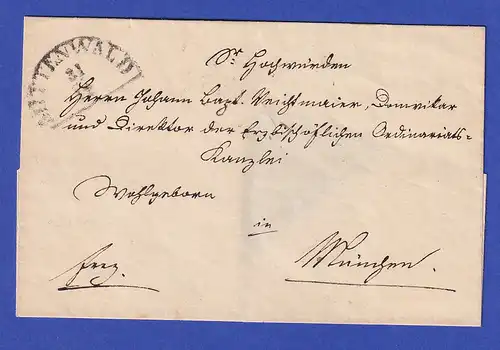 MITTENWALD
31
Sr Hochwürden
Herrn Johann Bapt. Veichtmaier, Domvikar
und Direktor der Erzbischöflichen Ordinariats-
Kanzlei
Wohlgeborn
in
München.
frey.